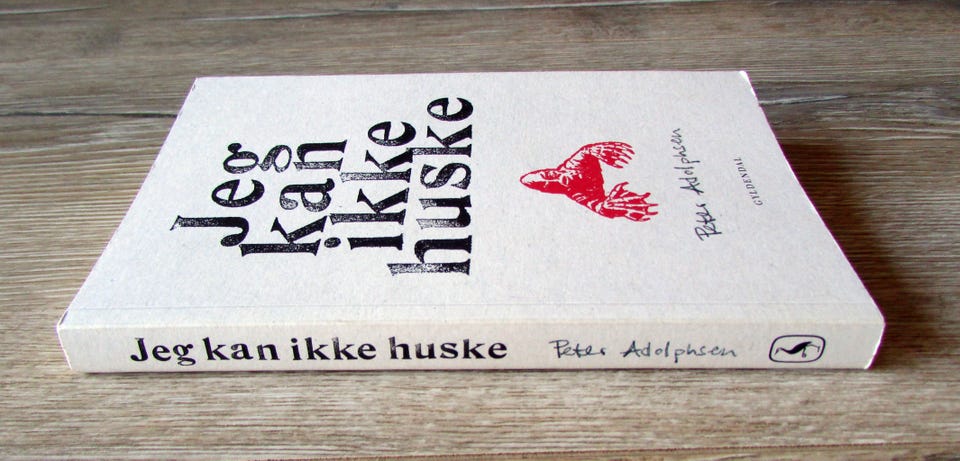 Jeg
kan
ikke
huske
Peter Adolphsen
GYLDENDAL
Jeg kan ikke huske Peter Adolphsen